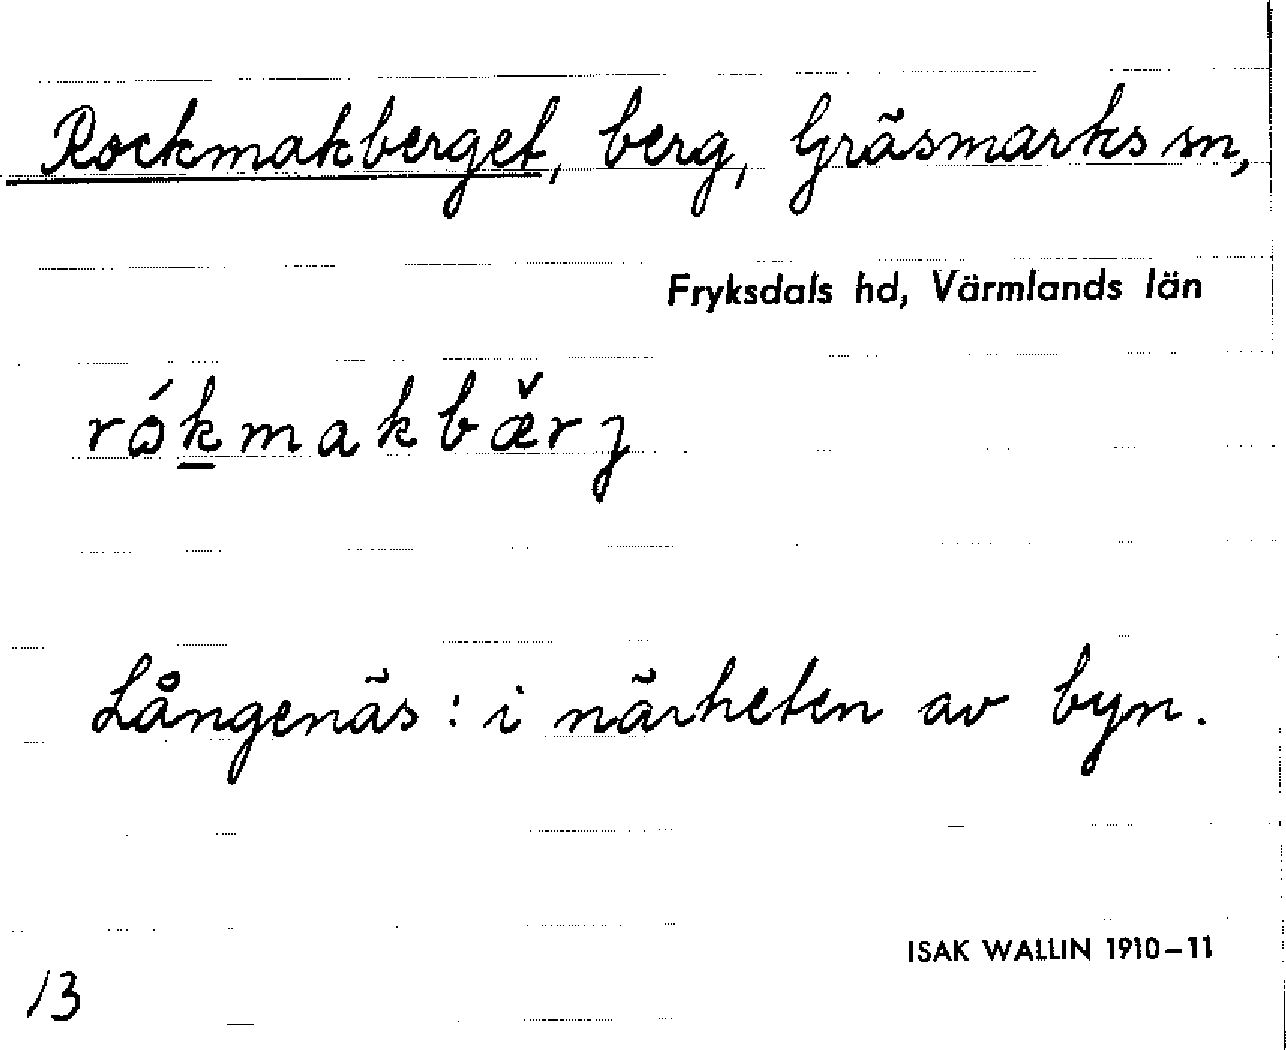 Rockmakberget, berg, Gräsmarks sn,
Fryksdals hd, Värmlands län
rókmakbæ̌rj
Långenäs: i närheten av byn.
ISAK WALLIN 1910–11
13